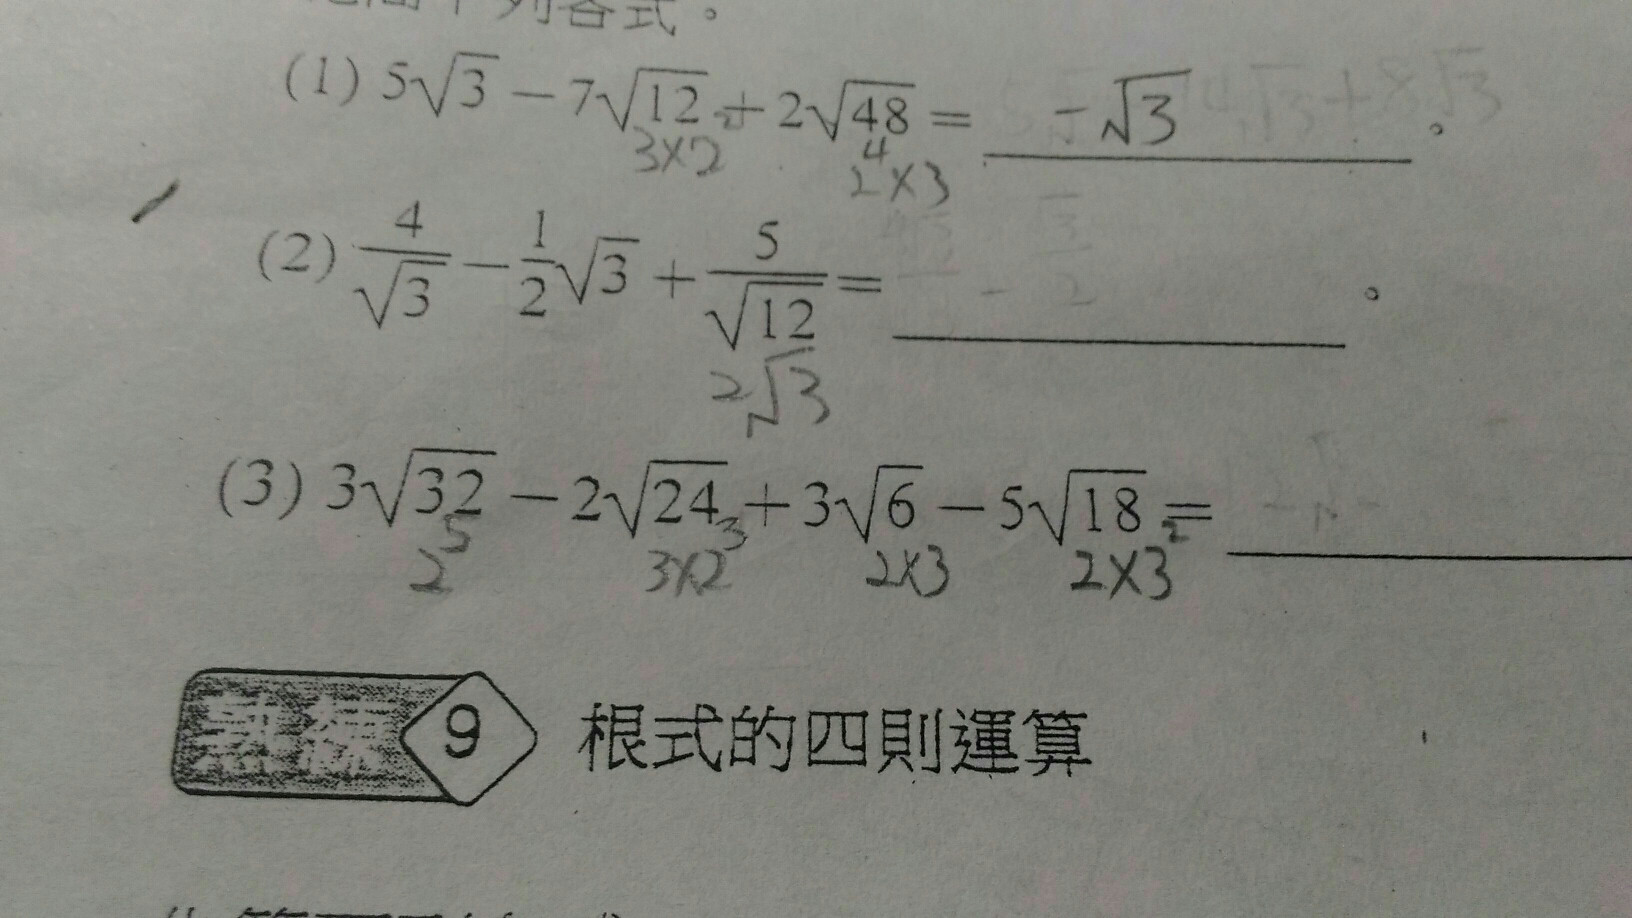 列各式。
(1) 5√3 − 7√12 + 2√48 = −√3 。
3×2² 2⁴×3
(2) 4/√3 − 1/2√3 + 5/√12 = 。
2√3
(3) 3√32 − 2√24 + 3√6 − 5√18 =
2⁵ 3×2³ 2×3 2×3²
9 根式的四則運算